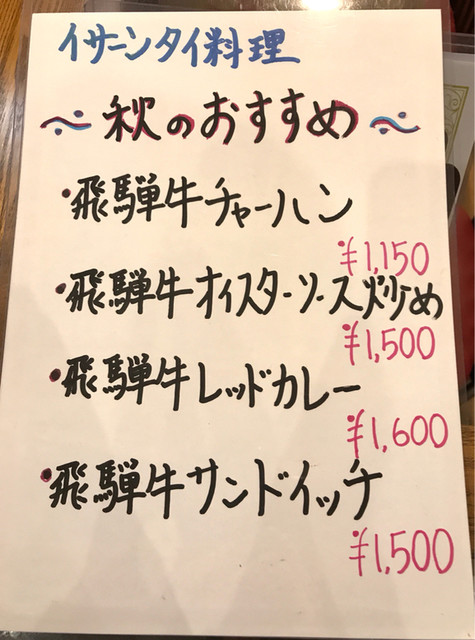 イサーンタイ料理
~秋のおすすめ~
•飛騨牛チャーハン
¥1,150
•飛騨牛オイスターソース炒め
¥1,500
•飛騨牛レッドカレー
¥1,600
•飛騨牛サンドイッチ
¥1,500